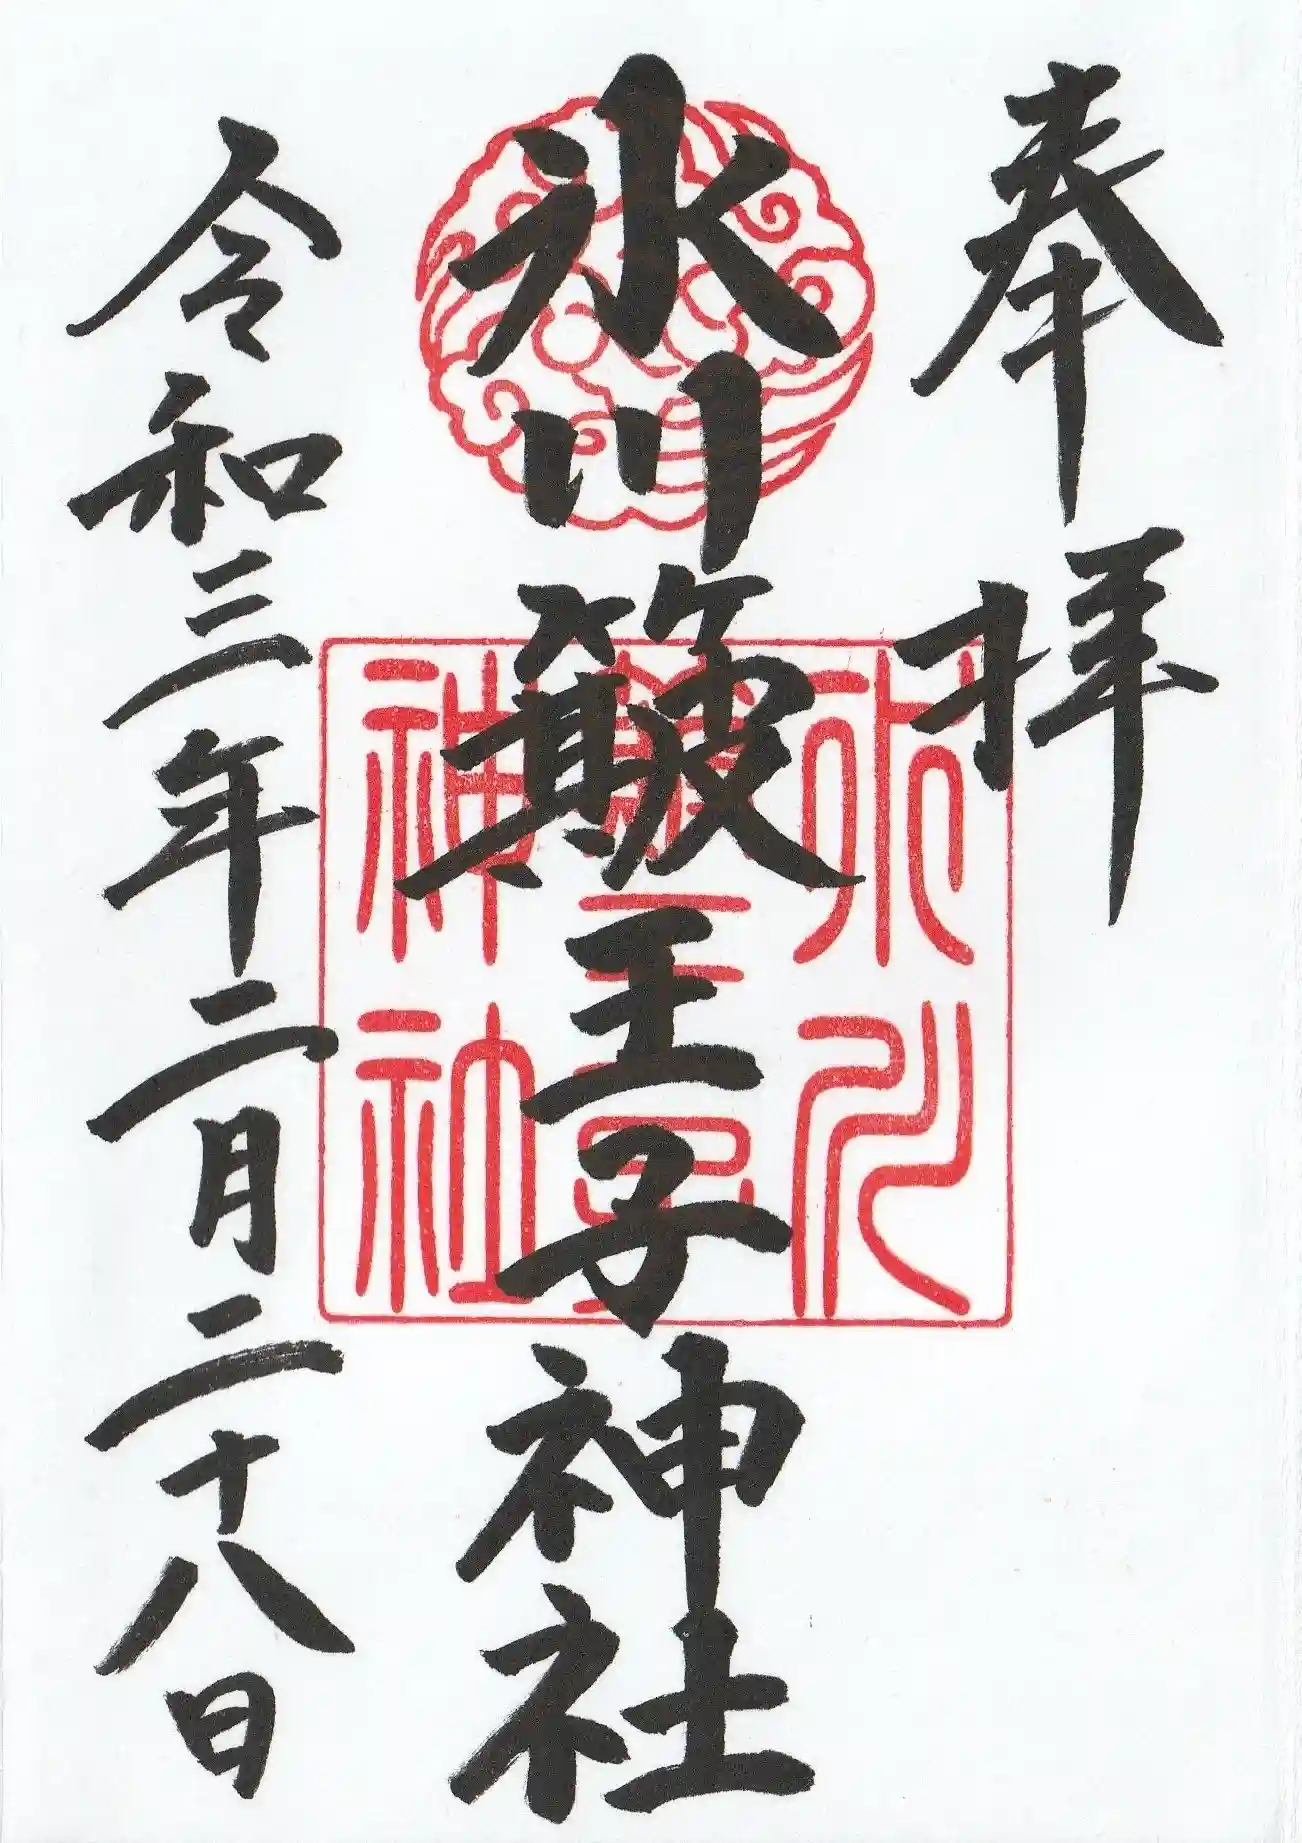 奉拝
氷川簸王子神社
令和三年二月二十八日
氷川
簸王子
神社